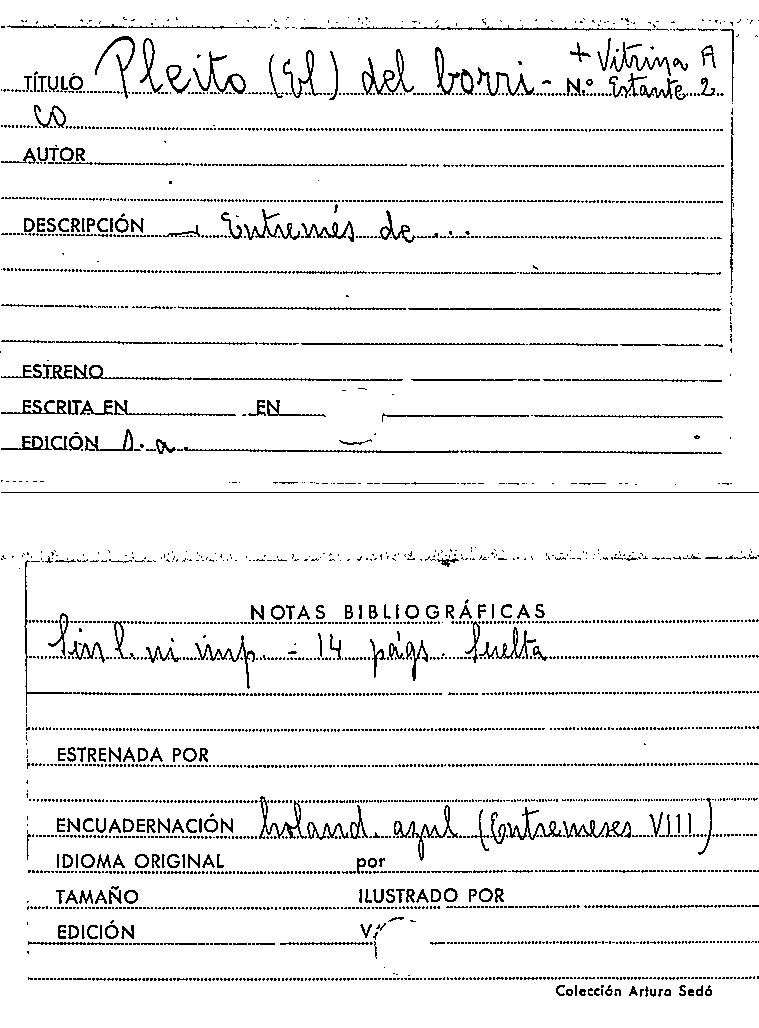 + Vitrina A
TÍTULO Pleito (El) del borri- N.º Estante 2
co
AUTOR
DESCRIPCIÓN — Entremés de ...
ESTRENO
ESCRITA EN EN
EDICIÓN s. a.
NOTAS BIBLIOGRÁFICAS
Sin l. ni imp. - 14 págs. Suelta
ESTRENADA POR
ENCUADERNACIÓN holand. azul (Entremeses VIII)
IDIOMA ORIGINAL por
TAMAÑO ILUSTRADO POR
EDICIÓN
Colección Arturo Sedó